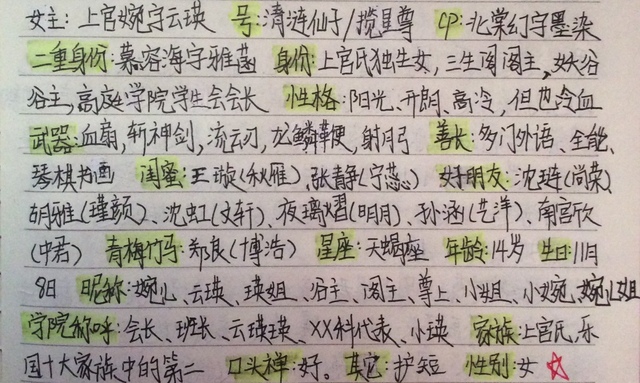 女主:上官婉字云瑛 号:清涟仙子/揽星尊 CP:北棠幻字墨染
二重身份:慕容海字雅菡 身份:上官氏独生女,三生阁阁主,谷
谷主,高庭学院学生会会长 性格:阳光、开朗、高冷,但也冷血
武器:血扇,斩神剑,流云刃,龙鳞鞭,射月弓 善长:多门外语、全能、
琴棋书画 闺蜜:王璇(秋雁),张静(宁蕊) 好朋友:沈琏(尚荣)、
胡雅(瑾颜)、沈虹(文轩)、夜璃熠(明月)、孙涵(艺洋)、南宫欣
(中若) 青梅竹马:郑良(博浩) 星座:天蝎座 年龄:14岁 生日:11月
8日 昵称:婉儿、云瑛、瑛姐、谷主、阁主、尊上、小姐、小婉、婉儿姐
学院称呼:会长、班长、云瑛瑛、XX科代表、小瑛 家族:上官氏,乐
国十大家族中的第二 口头禅:好。 其它:护短 性别:女